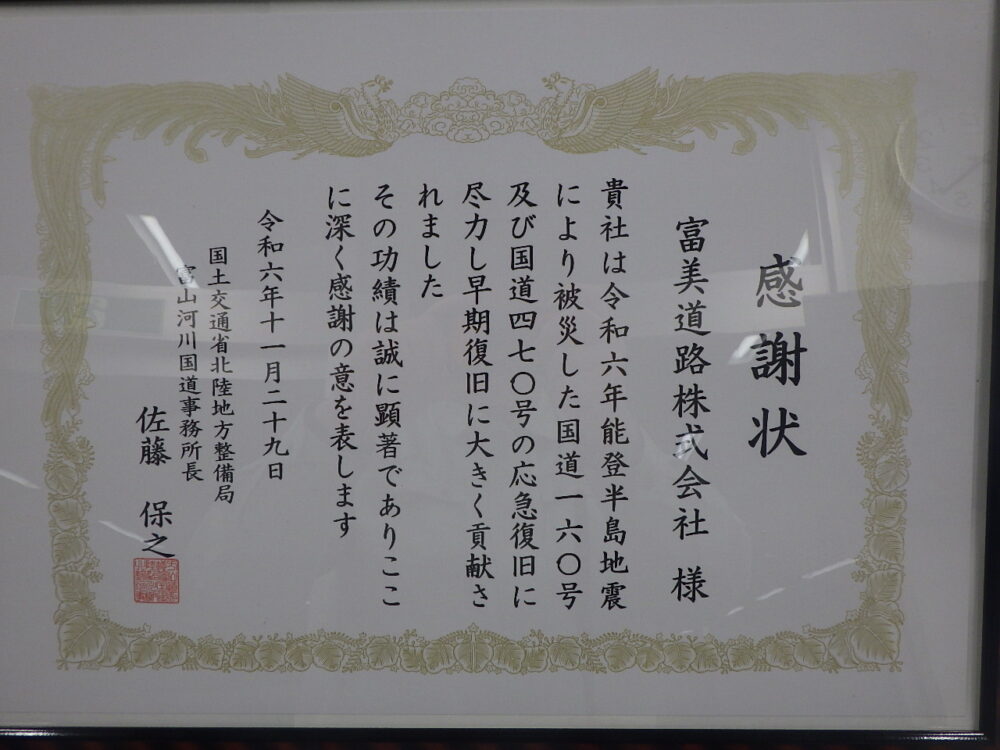 感謝状
富美道路株式会社 様
貴社は令和六年能登半島地震
により被災した国道一六〇号
及び国道四七〇号の応急復旧に
尽力し早期復旧に大きく貢献さ
れました
その功績は誠に顕著でありここ
に深く感謝の意を表します
令和六年十一月二十九日
国土交通省北陸地方整備局
富山河川国道事務所長
佐藤 保之